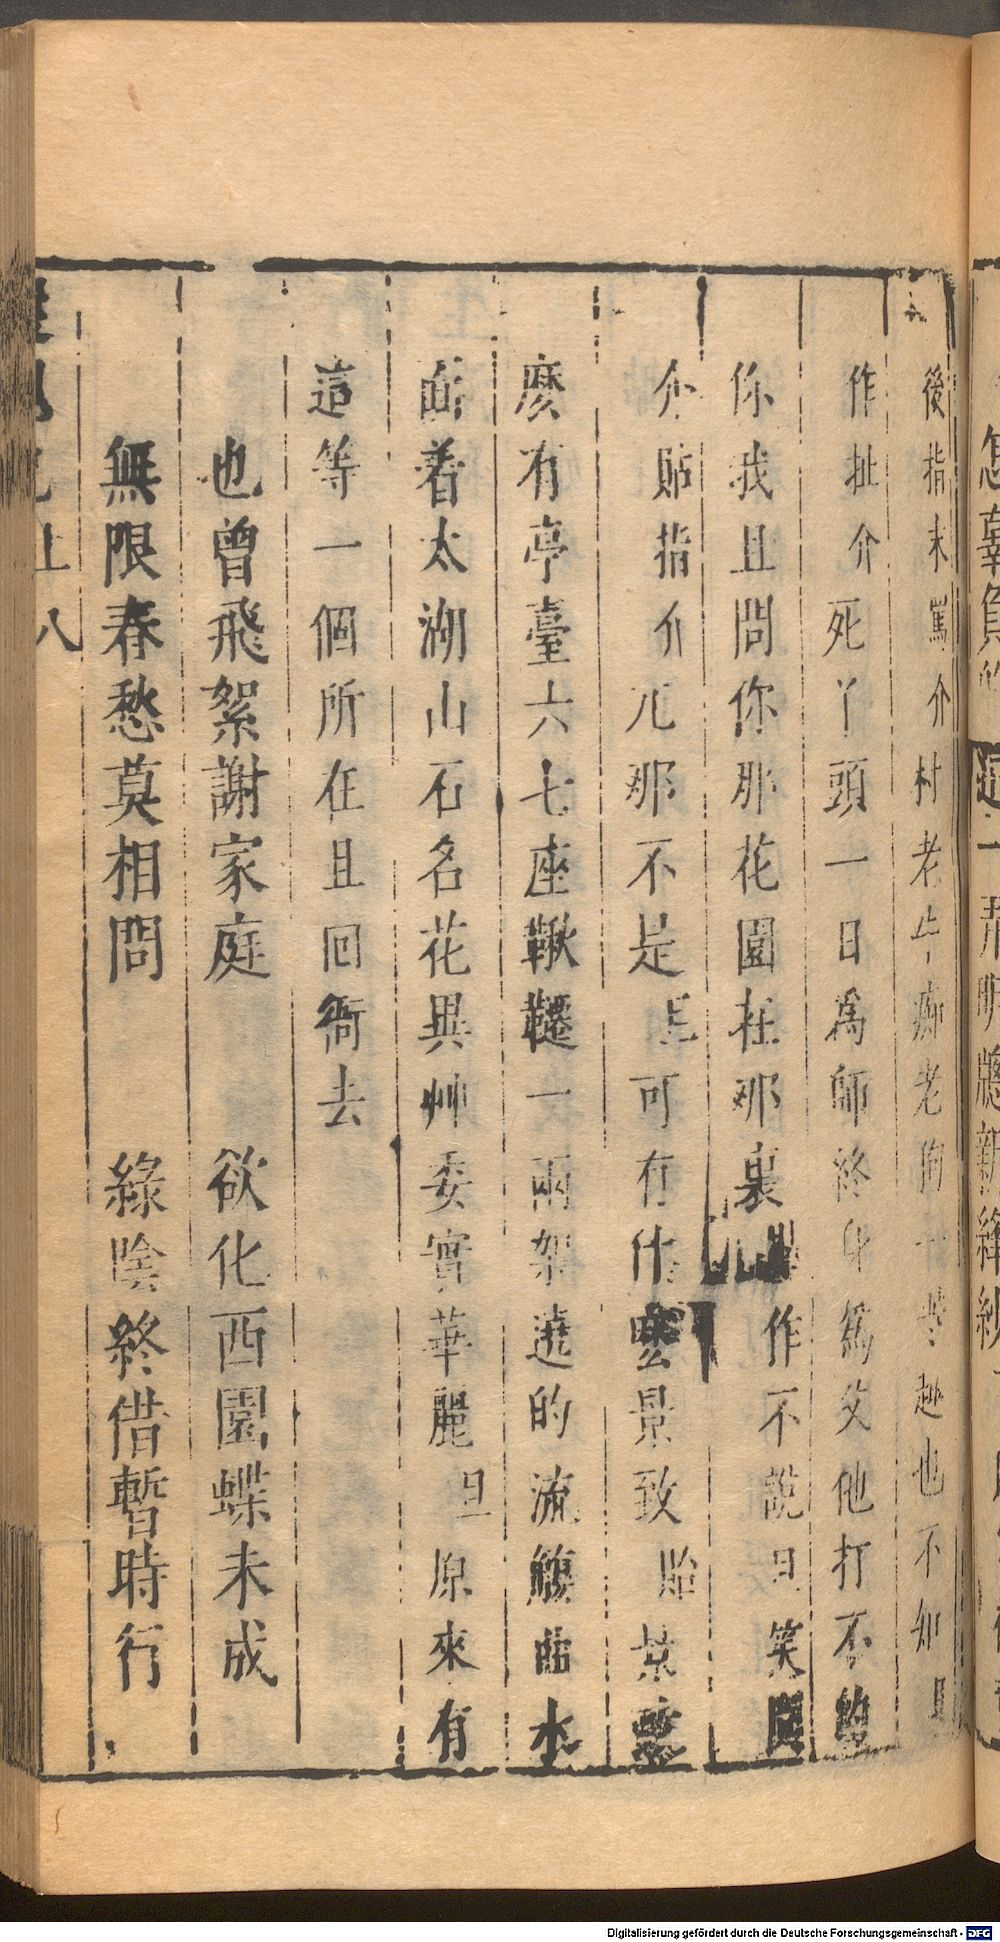 後指末罵介村老牛痴老狗一些趣也不知旦
作扯介死丫頭一日為師終身為父他打不的
你我且問你那花園在那裏作不說旦笑問
介貼指介兀那不是旦可有什麼景致貼景致
麼有亭臺六七座鞦韆一兩架遶的流觴曲水
面着太湖山石名花異艸委實華麗旦原來有
這等一個所在且回衙去
也曾飛絮謝家庭 欲化西園蝶未成
無限春愁莫相問 綠陰終借暫時行
上 八
Digitalisierung gefördert durch die Deutsche Forschungsgemeinschaft - DFG